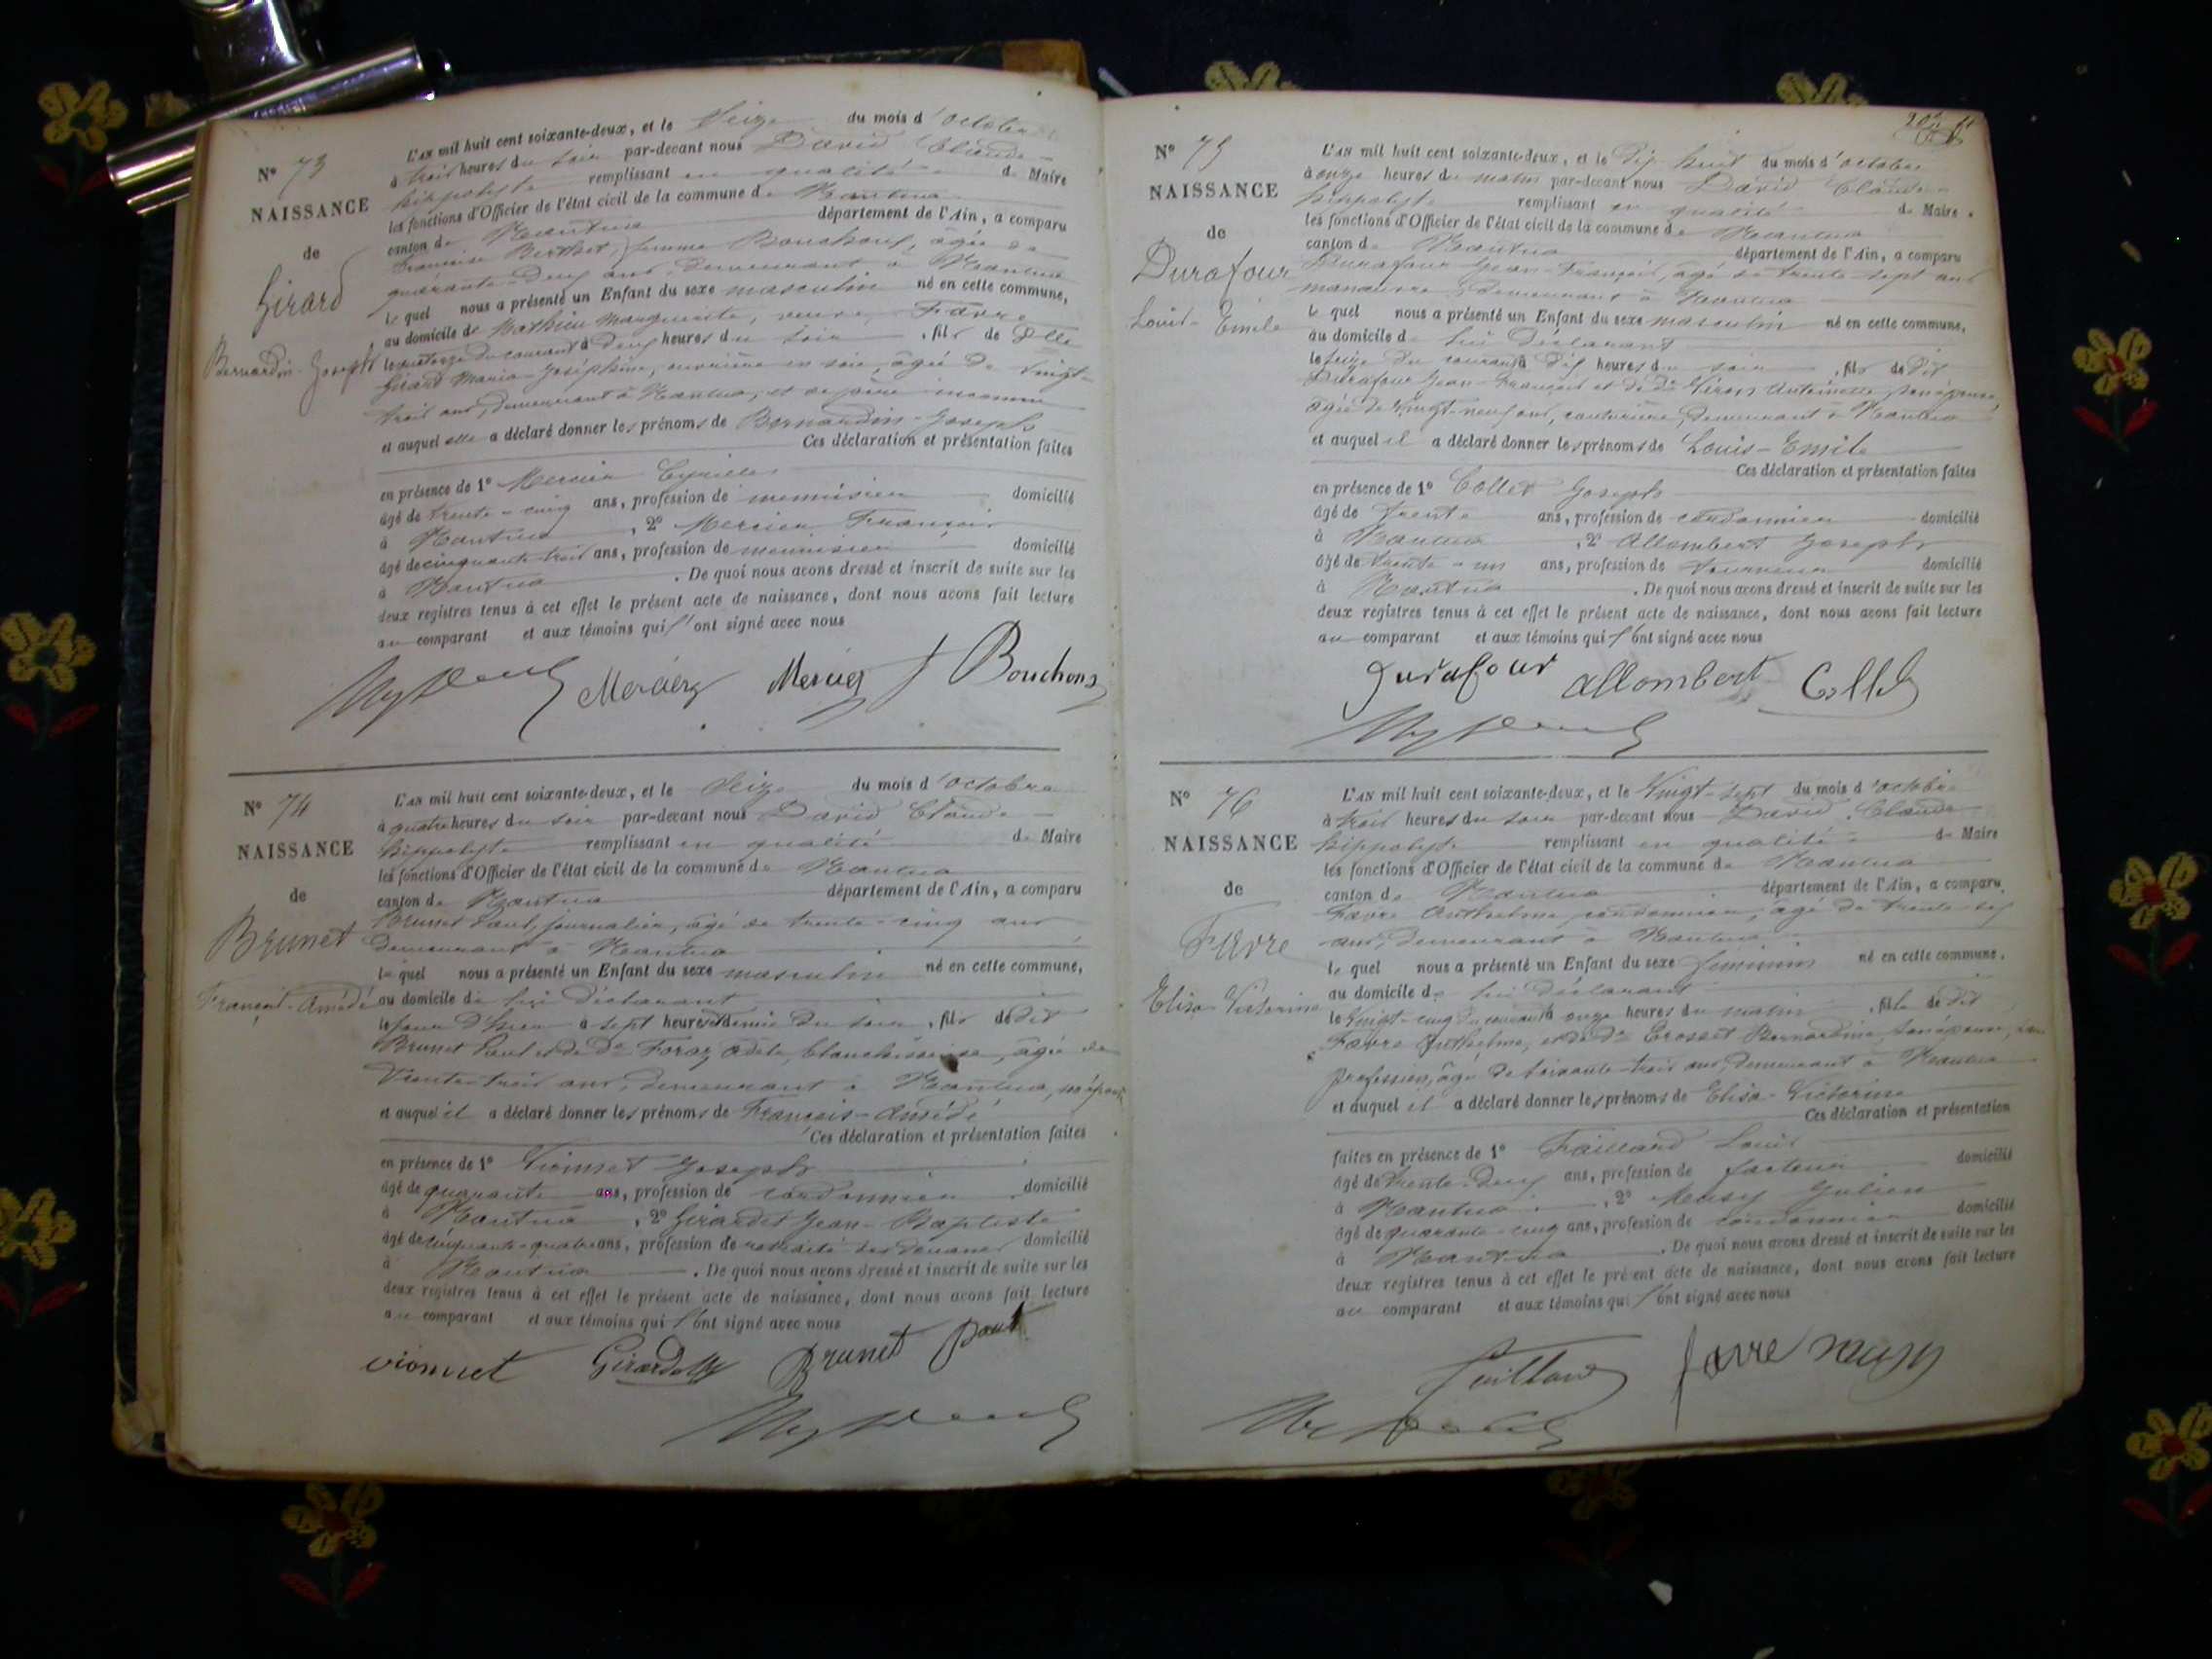 N° 73
NAISSANCE
de
Girard
Bernardin-Joseph
L'AN mil huit cent soixante-deux, et le Seize du mois d'octobre
à trois heures du soir par-devant nous David Claude-
hippolyte remplissant en qualité de Maire
les fonctions d'Officier de l'état civil de la commune de Nantua
canton de Nantua département de l'Ain, a comparu
Françoise Berthet, femme Bouchons, âgée de
quarante-deux ans, demeurant à Nantua
le quel nous a présenté un Enfant du sexe masculin né en cette commune,
au domicile de Mathieu Marguerite, veuve Favre
le quatorze du courant à deux heures du soir, fils de Dlle
Girard Marie-Joséphine, ouvrière en soie, âgée de vingt-
trois ans, demeurant à Nantua, et de père inconnu
et auquel elle a déclaré donner les prénoms de Bernardin-Joseph
Ces déclaration et présentation faites
en présence de 1° Mercier Cyrille
âgé de trente-cinq ans, profession de menuisier domicilié
à Nantua, 2° Mercier François
âgé de cinquante-trois ans, profession de menuisier domicilié
à Nantua. De quoi nous avons dressé et inscrit de suite sur les
deux registres tenus à cet effet le présent acte de naissance, dont nous avons fait lecture
au comparant et aux témoins qui l'ont signé avec nous
Mercier Mercier f Bouchons
N° 74
NAISSANCE
de
Brunet
François-Amédé
L'AN mil huit cent soixante-deux, et le Seize du mois d'octobre
à quatre heures du soir par-devant nous David Claude-
hippolyte remplissant en qualité de Maire
les fonctions d'Officier de l'état civil de la commune de Nantua
canton de Nantua département de l'Ain, a comparu
Brunet Paul, journalier, âgé de trente-cinq ans
demeurant à Nantua
le quel nous a présenté un Enfant du sexe masculin né en cette commune,
au domicile de lui déclarant
le jour d'hier à sept heures et demie du soir, fils de dit
Brunet Paul et de De Foraz Adèle, blanchisseuse, âgée de
trente-trois ans, demeurant à Nantua, son épouse
et auquel il a déclaré donner les prénoms de François-Amédé
Ces déclaration et présentation faites
en présence de 1° Vionnet Joseph
âgé de quarante ans, profession de cordonnier domicilié
à Nantua, 2° Girardet Jean-Baptiste
âgé de cinquante-quatre ans, profession de retraité des Douanes domicilié
à Nantua. De quoi nous avons dressé et inscrit de suite sur les
deux registres tenus à cet effet le présent acte de naissance, dont nous avons fait lecture
au comparant et aux témoins qui l'ont signé avec nous
vionnet Girardet Brunet Paul
N° 75
NAISSANCE
de
Durafour
Louis-Emile
L'AN mil huit cent soixante-deux, et le Dix huit du mois d'octobre
à onze heures du matin par-devant nous David Claude-
hippolyte remplissant en qualité de Maire
les fonctions d'Officier de l'état civil de la commune de Nantua
canton de Nantua département de l'Ain, a comparu
Durafour Jean-François, âgé de trente-sept ans
manœuvre, demeurant à Nantua
le quel nous a présenté un Enfant du sexe masculin né en cette commune,
au domicile de lui déclarant
le seize du courant à dix heures du soir, fils de dit
Durafour Jean-François et de De Antoinette, son épouse,
âgée de vingt-neuf ans, couturière, demeurant à Nantua
et auquel il a déclaré donner les prénoms de Louis-Emile
Ces déclaration et présentation faites
en présence de 1° Collet Joseph
âgé de trente ans, profession de cordonnier domicilié
à Nantua, 2° Allombert Joseph
âgé de trente-un ans, profession de tourneur domicilié
à Nantua. De quoi nous avons dressé et inscrit de suite sur les
deux registres tenus à cet effet le présent acte de naissance, dont nous avons fait lecture
au comparant et aux témoins qui l'ont signé avec nous
Durafour Allombert Collet
N° 76
NAISSANCE
de
Favre
Elisa-Victorine
L'AN mil huit cent soixante-deux, et le Vingt-sept du mois d'octobre
à trois heures du soir par-devant nous David Claude
hippolyte remplissant en qualité de Maire
les fonctions d'Officier de l'état civil de la commune de Nantua
canton de Nantua département de l'Ain, a comparu
Favre Anthelme, cordonnier, âgé de trente-six
ans, demeurant à Nantua
le quel nous a présenté un Enfant du sexe féminin né en cette commune,
au domicile de lui déclarant
le Vingt-cinq du courant à onze heures du matin, fille de dit
Favre Anthelme, et de De Crosset Bernardine, son épouse, sans
profession, âgé de trente-trois ans, demeurant à Nantua
et auquel il a déclaré donner les prénoms de Elisa-Victorine
Ces déclaration et présentation
faites en présence de 1° Faillard Louis
âgé de trente-deux ans, profession de facteur domicilié
à Nantua, 2° Julien
âgé de quarante-cinq ans, profession de cordonnier domicilié
à Nantua. De quoi nous avons dressé et inscrit de suite sur les
deux registres tenus à cet effet le présent acte de naissance, dont nous avons fait lecture
au comparant et aux témoins qui l'ont signé avec nous
favre